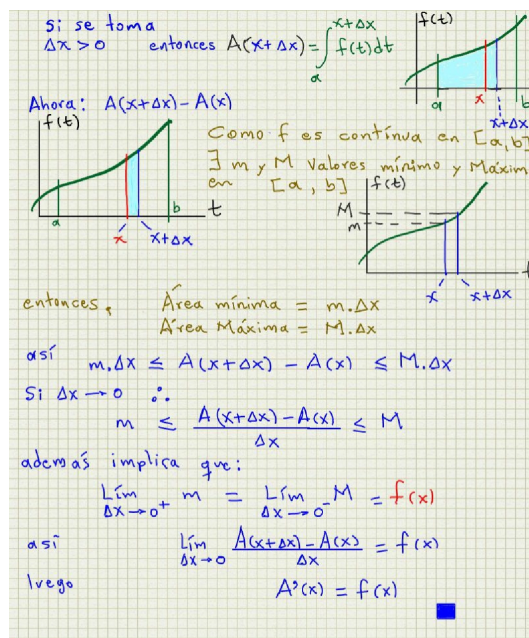 Si se toma
Δx > 0 entonces A(x+Δx) = ∫ₐˣ⁺Δˣ f(t)dt
f(t)
a x b
x+Δx
Ahora: A(x+Δx) - A(x)
f(t)
a b t
x x+Δx
Como f es contínua en [a,b]
∃ m y M Valores mínimo y Máxim
en [a, b]
f(t)
M
m
x x+Δx
entonces, Área mínima = m.Δx
Área Máxima = M.Δx
así m.Δx ≤ A(x+Δx) - A(x) ≤ M.Δx
Si Δx → 0 ∴
m ≤ (A(x+Δx) - A(x))/Δx ≤ M
además implica que:
Lím Δx→0⁺ m = Lím Δx→0⁻ M = f(x)
así Lím Δx→0 (A(x+Δx) - A(x))/Δx = f(x)
luego A'(x) = f(x)